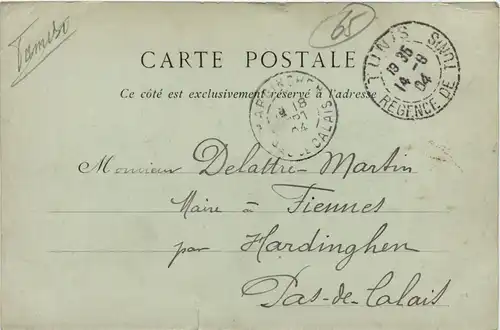 Tambo
65
CARTE POSTALE
TUNIS TUNIS
19 35
14 -8
04
REGENCE DE
Ce côté est exclusivement réservé à l'adresse
18
04
PAS-DE-CALAIS
Monsieur Delattre-Martin
Maire à Fiennes
par Hardinghen
Pas-de-Calais